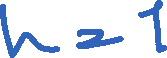 h = 1